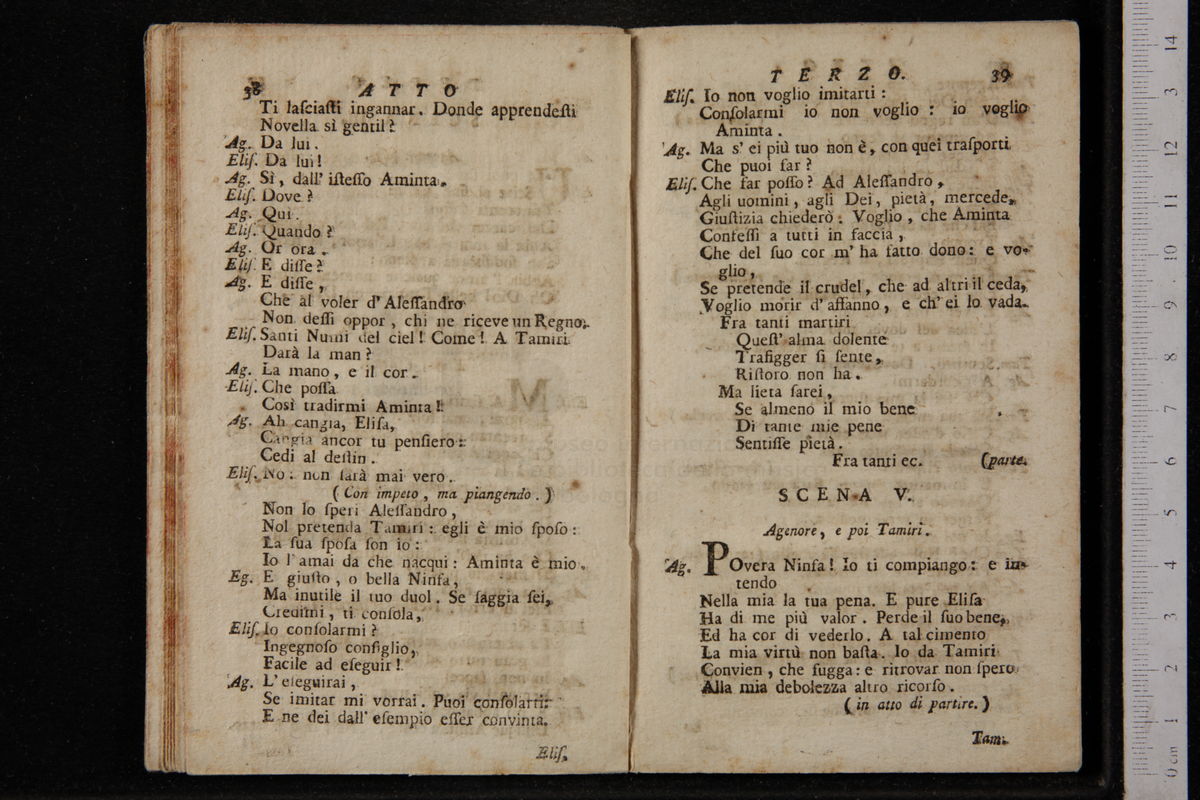 38 ATTO
Ti laſciaſti ingannar. Donde apprendeſti
Novella sì gentil?
Ag. Da lui.
Eliſ. Da lui!
Ag. Sì, dall' iſteſſo Aminta.
Eliſ. Dove?
Ag. Qui.
Eliſ. Quando?
Ag. Or ora.
Eliſ. E diſſe?
Ag. E diſſe,
Che al voler d' Aleſſandro
Non deſſi oppor, chi ne riceve un Regno.
Eliſ. Santi Numi del ciel! Come! A Tamiri
Darà la man?
Ag. La mano, e il cor.
Eliſ. Che poſſa
Così tradirmi Aminta!
Ag. Ah cangia, Eliſa,
Cangia ancor tu penſiero:
Cedi al deſtin.
Eliſ. No: non ſarà mai vero.
(Con impeto, ma piangendo.)
Non lo ſperi Aleſſandro,
Nol pretenda Tamiri: egli è mio ſpoſo:
La ſua ſpoſa ſon io:
Io l'amai da che nacqui: Aminta è mio.
Eg. E giuſto, o bella Ninfa,
Ma inutile il tuo duol. Se ſaggia ſei,
Credimi, ti conſola,
Eliſ. Io conſolarmi?
Ingegnoſo conſiglio,
Facile ad eſeguir!
Ag. L' eſeguirai,
Se imitar mi vorrai. Puoi conſolarti:
E ne dei dall' eſempio eſſer convinta.
Eliſ.
TERZO. 39
Eliſ. Io non voglio imitarti:
Conſolarmi io non voglio: io voglio
Aminta.
Ag. Ma s' ei più tuo non è, con quei traſporti
Che puoi far?
Eliſ. Che far poſſo? Ad Aleſſandro,
Agli uomini, agli Dei, pietà, mercede,
Giuſtizia chiederò: Voglio, che Aminta
Confeſſi a tutti in faccia,
Che del ſuo cor m' ha fatto dono: e vo-
glio,
Se pretende il crudel, che ad altri il ceda,
Voglio morir d' affanno, e ch' ei lo vada.
Fra tanti martiri
Queſt' alma dolente
Trafigger ſi ſente,
Riſtoro non ha.
Ma lieta ſarei,
Se almeno il mio bene
Di tante mie pene
Sentiſſe pietà.
Fra tanti ec. (parte.
SCENA V.
Agenore, e poi Tamiri.
Ag. POvera Ninfa! Io ti compiango: e in-
tendo
Nella mia la tua pena. E pure Eliſa
Ha di me più valor. Perde il ſuo bene,
Ed ha cor di vederlo. A tal cimento
La mia virtù non baſta. Io da Tamiri
Convien, che fugga: e ritrovar non ſpero
Alla mia debolezza altro ricorſo.
(in atto di partire.)
Tam.